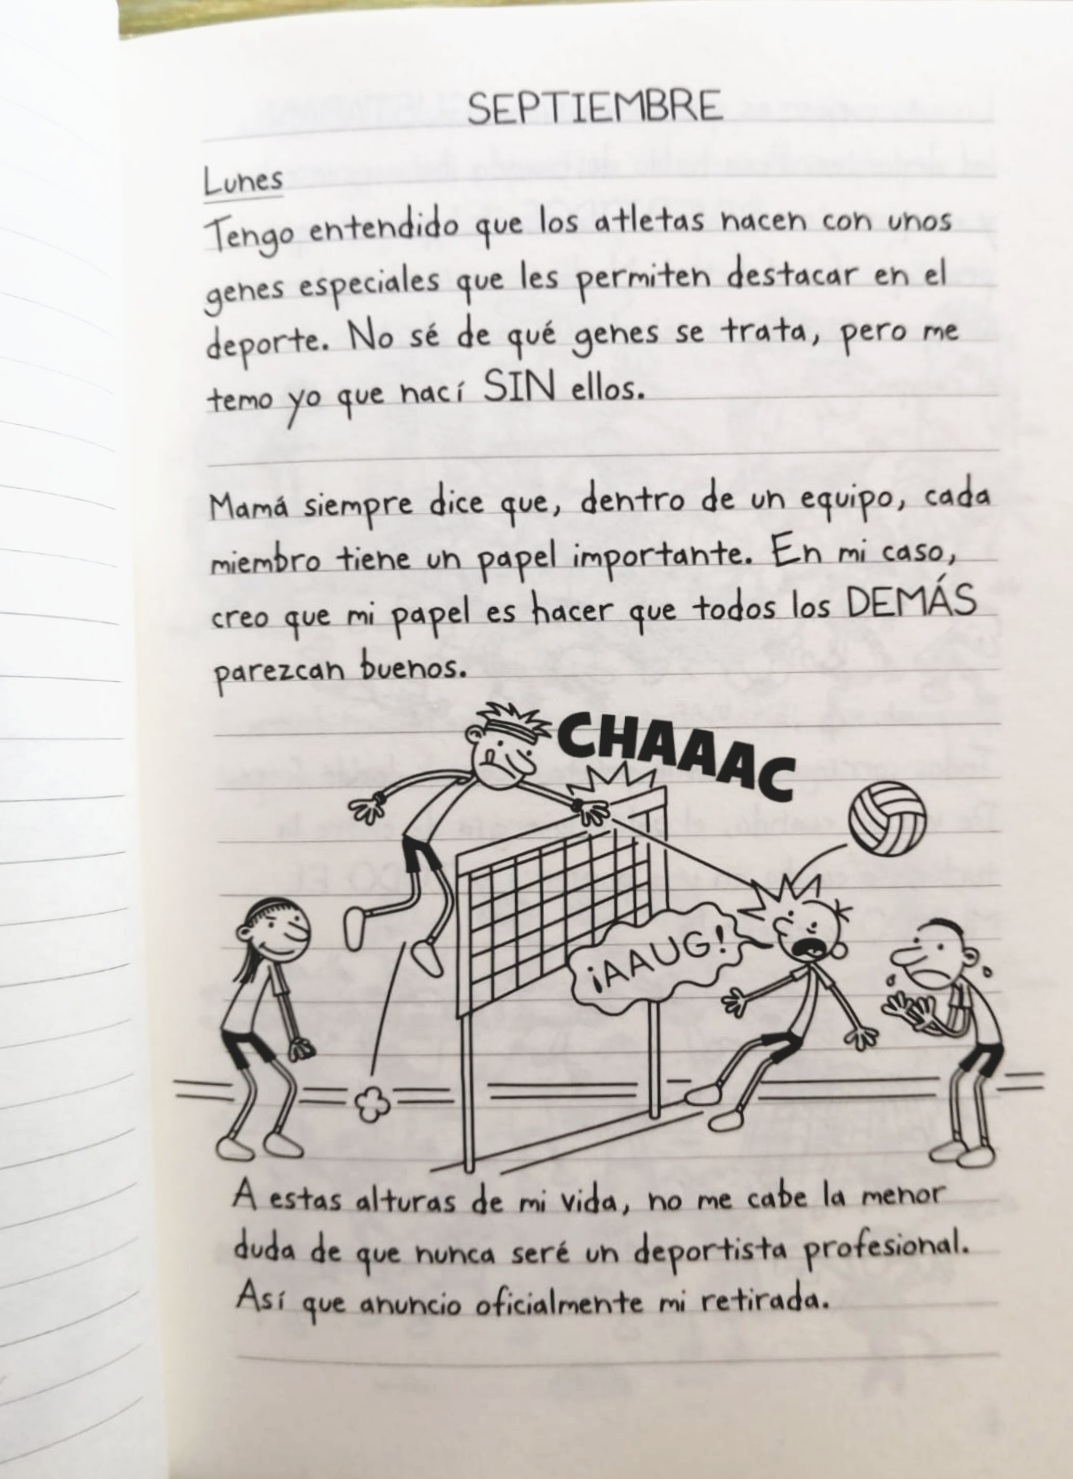 SEPTIEMBRE
Lunes
Tengo entendido que los atletas nacen con unos
genes especiales que les permiten destacar en el
deporte. No sé de qué genes se trata, pero me
temo yo que nací SIN ellos.
Mamá siempre dice que, dentro de un equipo, cada
miembro tiene un papel importante. En mi caso,
creo que mi papel es hacer que todos los DEMÁS
parezcan buenos.
CHAAAC
¡AAUG!
A estas alturas de mi vida, no me cabe la menor
duda de que nunca seré un deportista profesional.
Así que anuncio oficialmente mi retirada.